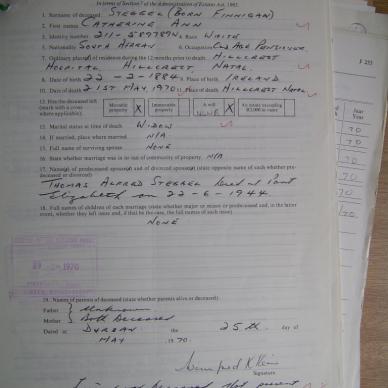 In terms of Section 7 of the Administration of Estates Act, 1965.
1. Surname of deceased STEGGEL (BORN FINNIGAN)
2. First names CATHERINE ANN
3. Identity number 211-589789 4. Race WHITE
5. Nationality SOUTH AFRICAN 6. Occupation OLD AGE PENSIONER
7. Ordinary place of residence during the 12 months prior to death HILLCREST
HOSPITAL HILLCREST NATAL
8. Date of birth 22-2-1884 9. Place of birth IRELAND
10. Date of death 21ST MAY, 1970 11. Place of death HILLCREST NATAL
12. Has the deceased left
(mark with a cross
where applicable).
Movable
property
X
Immovable
property
A will
NONE
X
An estate exceeding
R3,000 in value
15. Marital status at time of death WIDOW
14. If married, place where married N/A
15. Full name of surviving spouse NONE
16. State whether marriage was in or out of community of property N/A
17. Name(s) of predeceased spouse(s) and of divorced spouse(s) (state opposite name of each whether pre-
deceased or divorced)
THOMAS ALFRED STEGGEL died at Port
Elizabeth on 22-6-1944
18. Full names of children of each marriage (state whether major or minor or predeceased and, in the latter
event, whether they left issue and, if that be the case, the full names of such issue)
NONE
1970
19. Names of parents of deceased (state whether parents alive or deceased).
Father Unknown
Mother Both Deceased
Dated at DURBAN the 25th day of
MAY 1970.
Signature
present
J 255
Year
Jaar
70
70
70